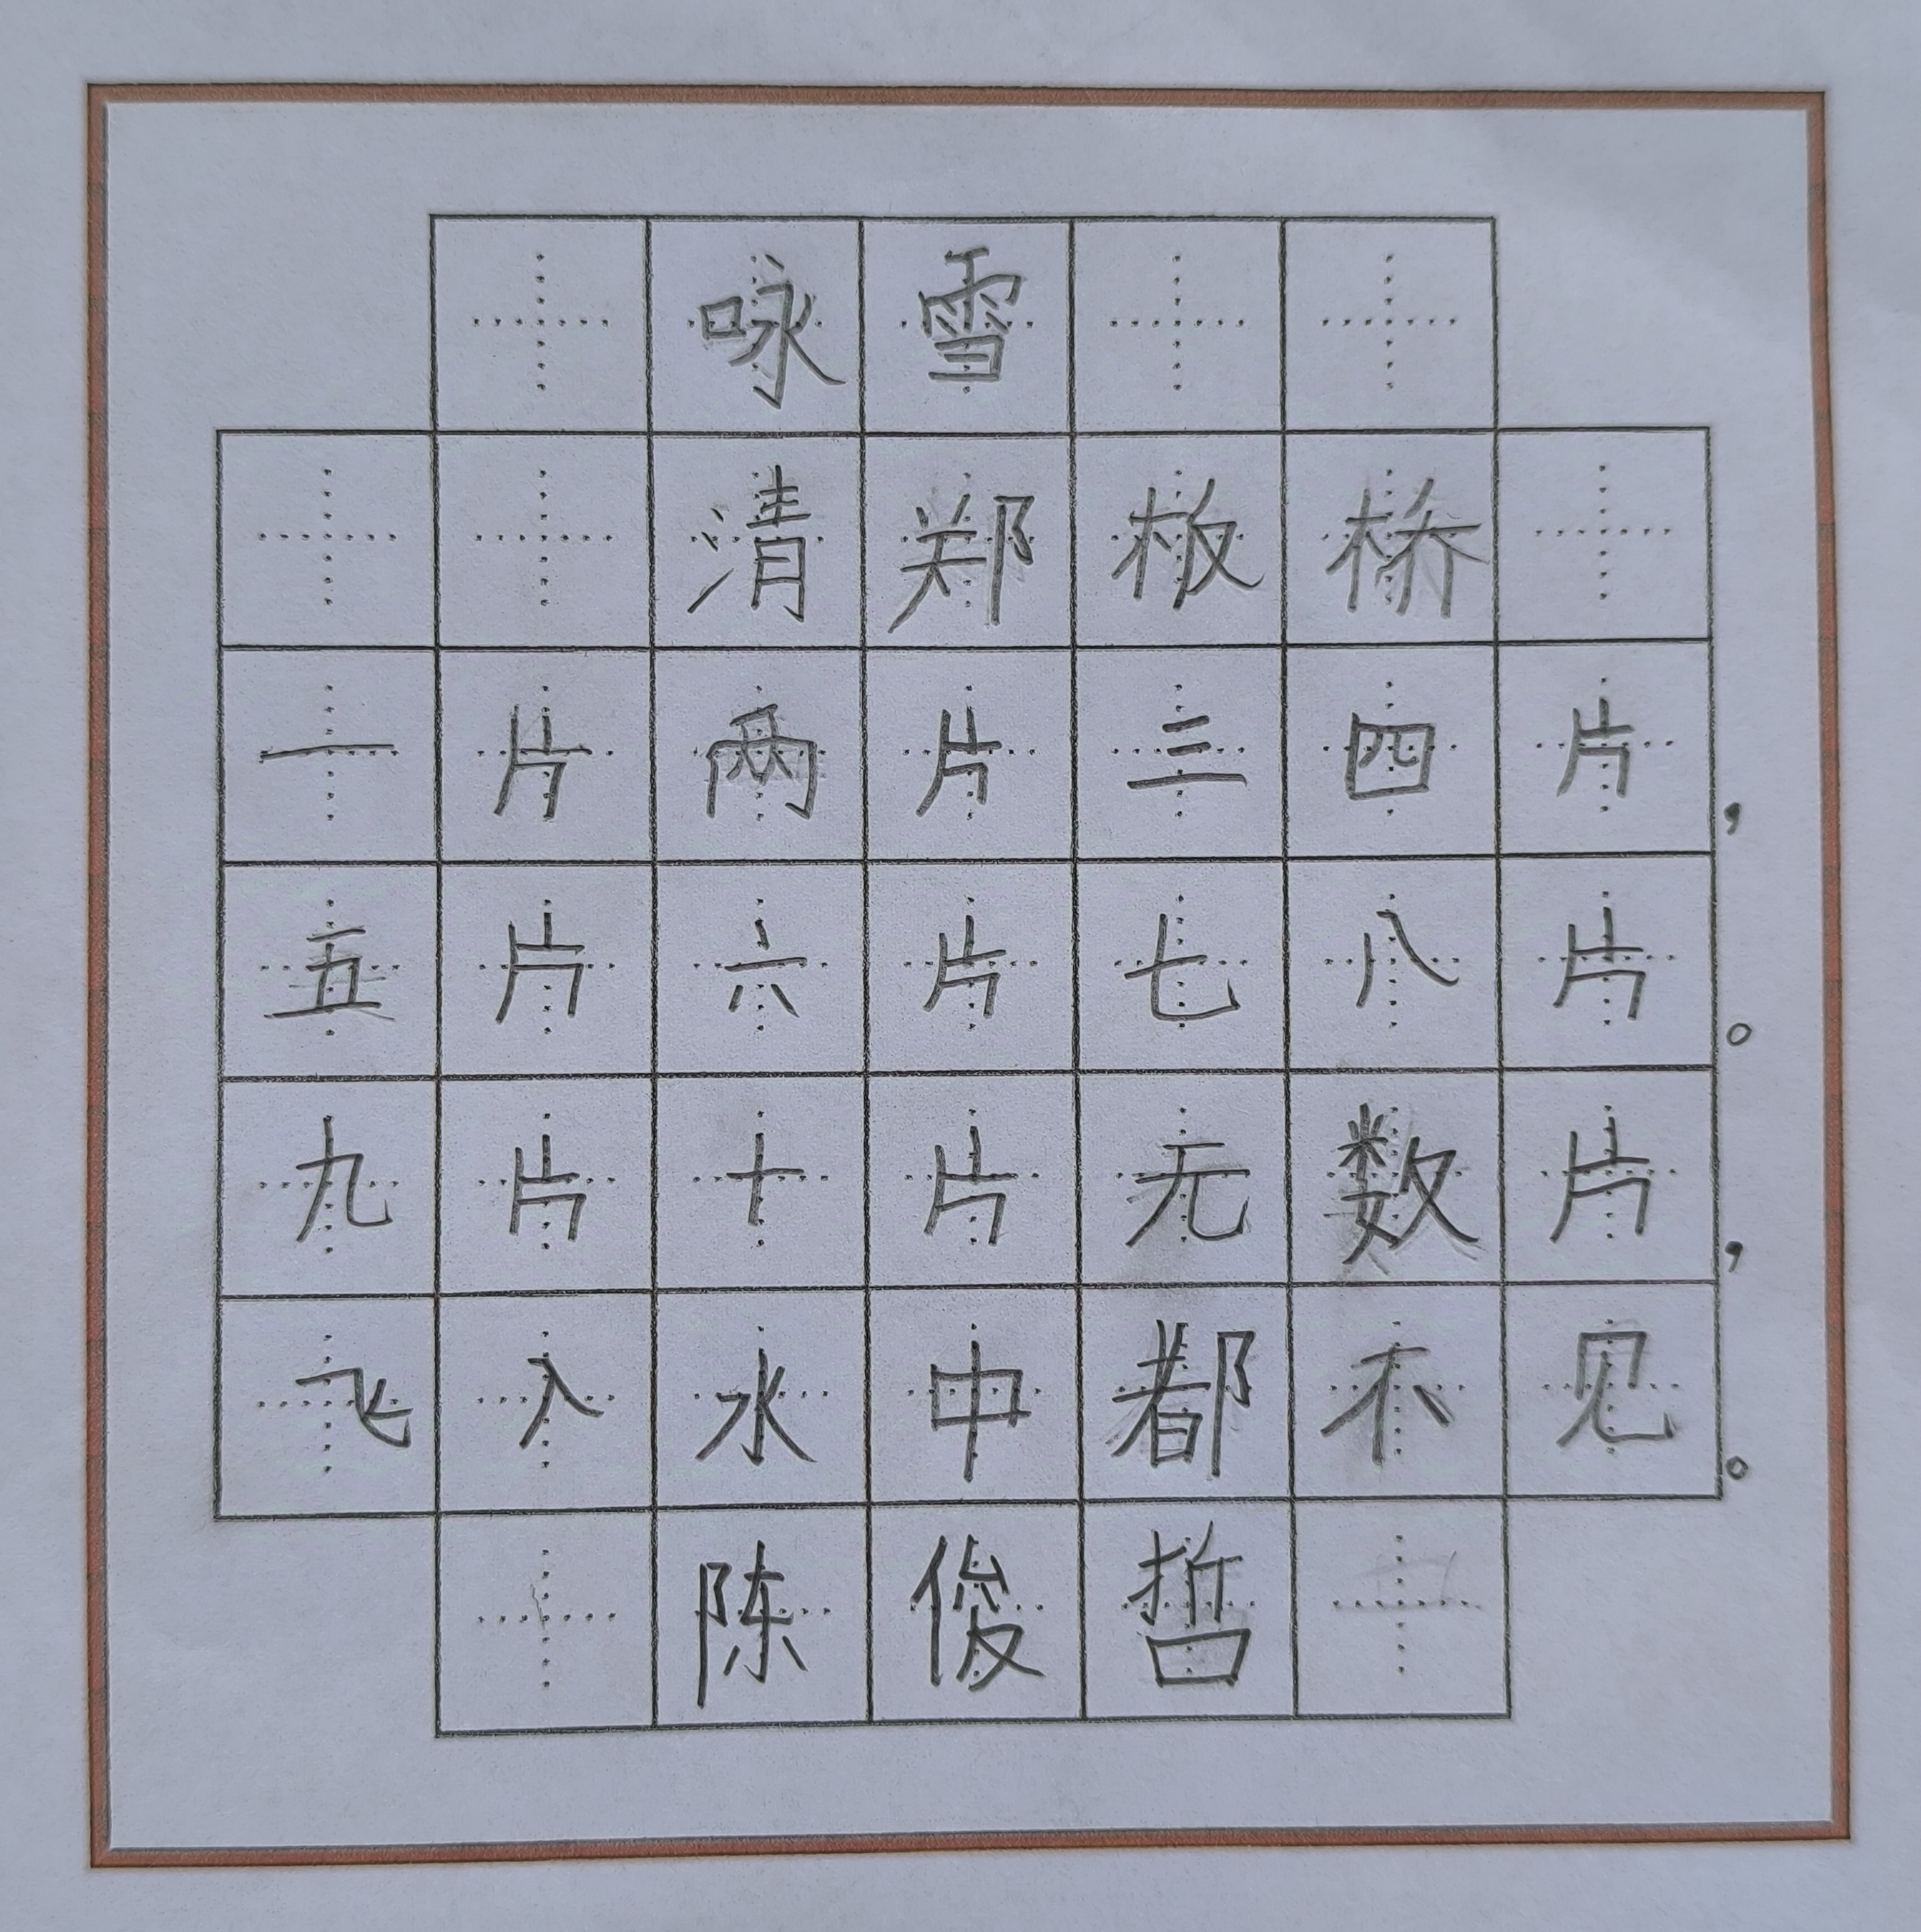 咏雪
清郑板桥
一片两片三四片，
五片六片七八片。
九片十片无数片，
飞入水中都不见。
陈俊哲